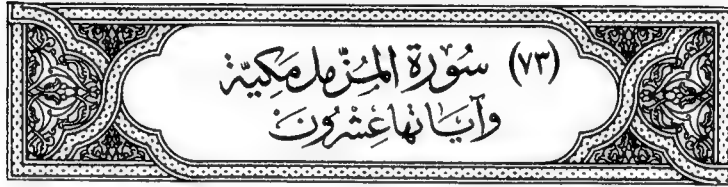 (٧٣) سُورَة المُزّمل مَكيَّة
وَآيَاتهَا عِشرُونَ